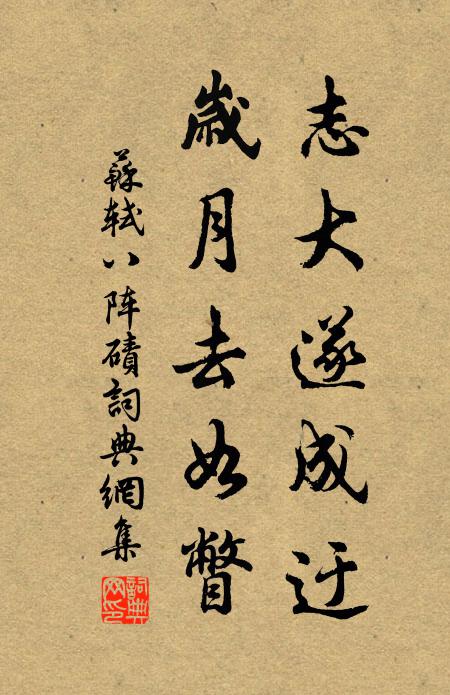 志大遂成迂
歲月去如瞥
蘇軾八阵磧詞典網集
詞典網印